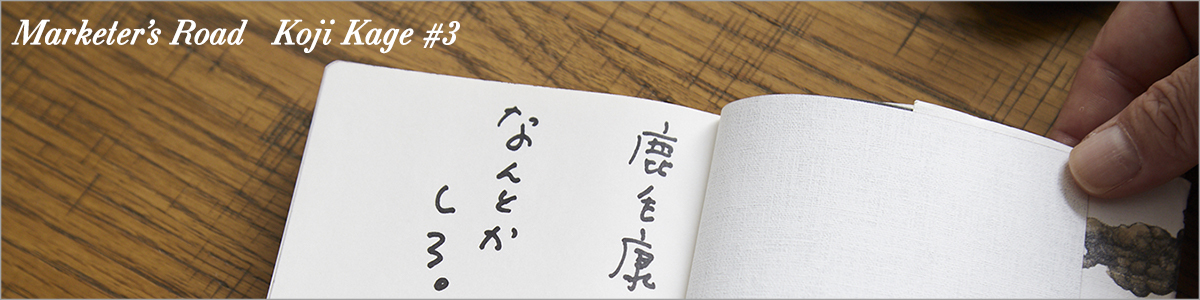 Marketer's Road Koji Kage #3
鹿を康
なんとか
しろ。